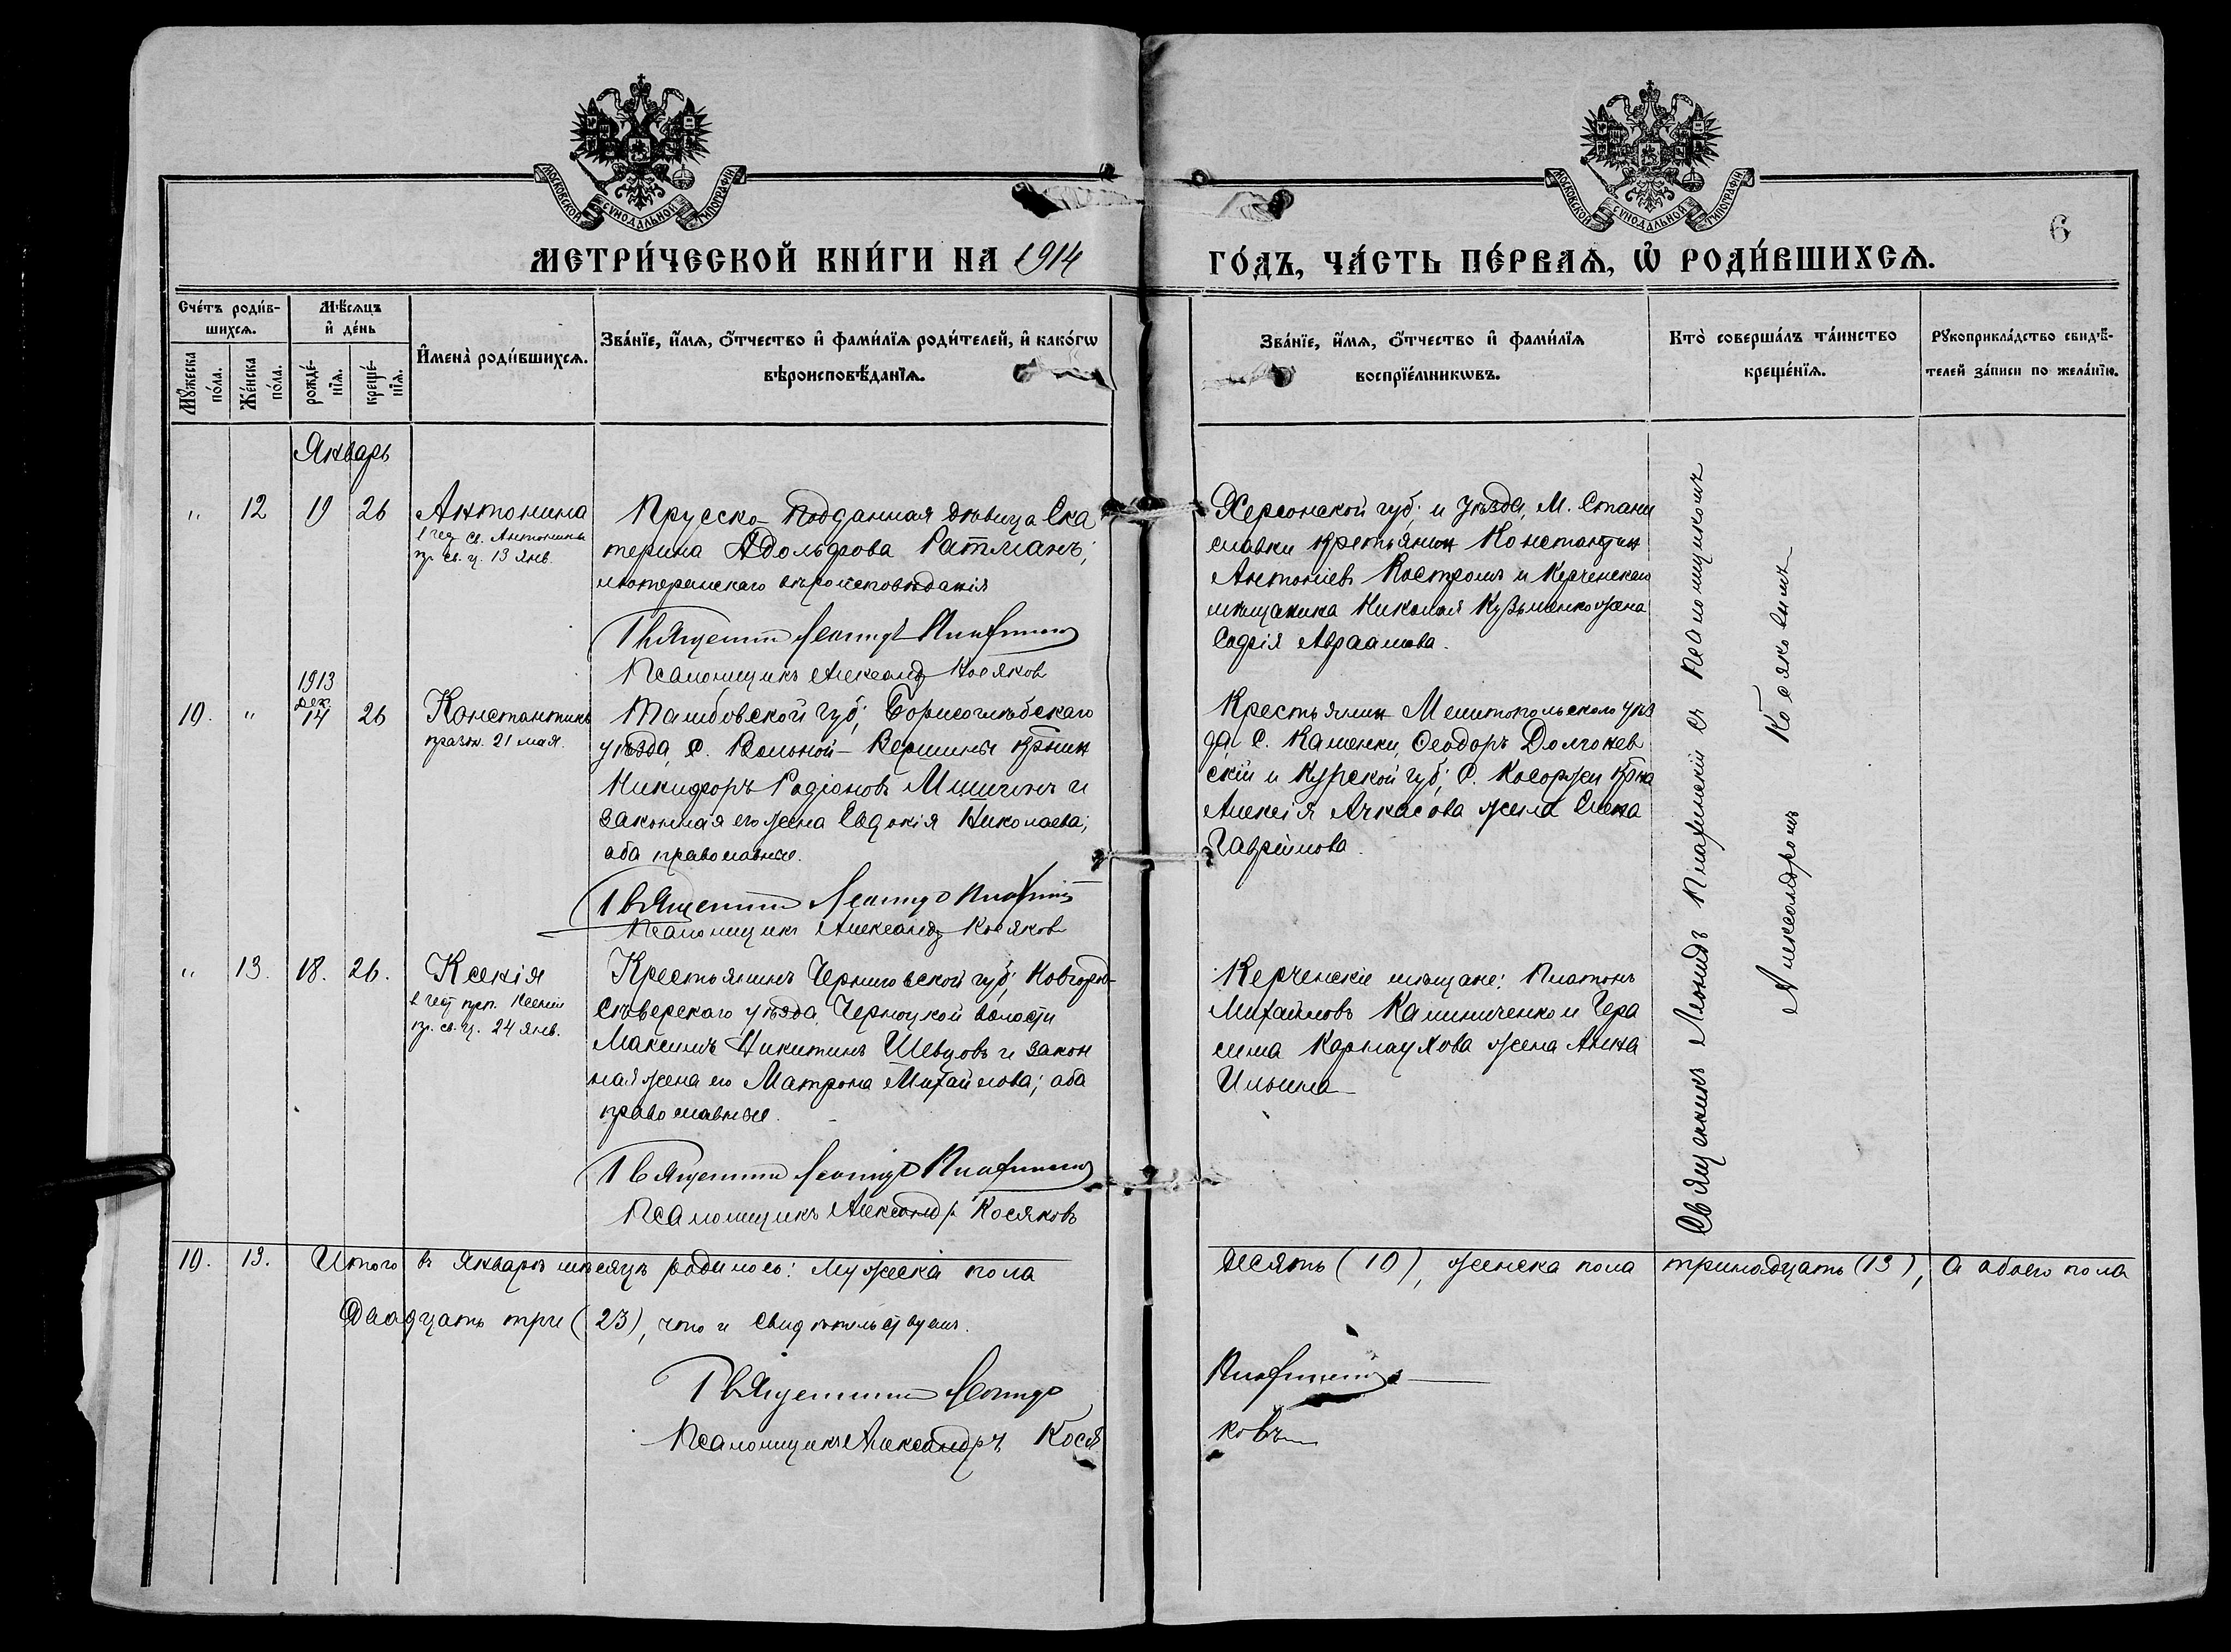 МОСКОВСКОЙ СѴНОДАЛЬНОЙ ТИПОГРАФІИ
МОСКОВСКОЙ СѴНОДАЛЬНОЙ ТИПОГРАФІИ
6
МЕТРИ́ЧЕСКОЙ КНИ́ГИ НА 1914
ГО́ДЪ, ЧА́СТЬ ПЕ́РВАѦ, Ѡ҆ РОДИ́ВШИХСѦ.
Сче́тъ роди́в-
шихсѧ.
Мꙋжеска
по́ла.
Же́нска
по́ла.
Мѣ́сѧцъ
и҆ де́нь
рожде́-
нїѧ.
креще́-
нїѧ.
И҆мена̀ роди́вшихсѧ.
Зва́нїе, и҆́мѧ, ѻ҆́тчество и҆ фами́лїѧ роди́телей, и҆ како́гѡ
вѣроисповѣ́данїѧ.
Зва́нїе, и҆́мѧ, ѻ҆́тчество и҆ фами́лїѧ
воспрїе́мникѡвъ.
Кто̀ соверша́лъ та́инство
креще́нїѧ.
Рꙋкоприкла́дство свидѣ́-
телей за́писи по жела́нїю.
Январь
" 12 19 26
Антонина
в чес. св. Антонины
пр. св. ц. 13 Янв.
Прусско-подданная девица Ека
терина Адольфова Ратманъ;
лютеранскаго вѣроисповѣданія
Священникъ Леонидъ
Псаломщикъ Александр Косяков
Херсонской губ. и уѣзда, М. Стани
славки крестьянин Константин
Антоніев Костромъ и Керченскаго
мѣщанина Николая Кузьменко жена
Софія Авраамова.
10. " 1913
дек.
14 26
Константинъ
празн. 21 мая.
Тамбовской губ., Борисоглѣбскаго
уѣзда, с. Вольной-Вершины крнин
Никифоръ Родіоновъ Мишинъ и
законная его жена Евдокія Николаева;
оба православные.
Священникъ Леонидъ
Псаломщикъ Александр Косяков
Крестьянин Мелитопольского уѣз
да с. Каменки, Ѳеодоръ Долгонев
скій и Курской губ., с. Косоржи крна
Алексія Ачкасова жена Елена
Гавріилова.
" 13. 18. 26.
Ксенія
в чест прп. Ксеніи
пр. св. ц. 24 Янв.
Крестьянинъ Черниговской губ., Новгород-
Сѣверскаго уѣзда, волости
Максимъ Никитинъ Шевцовъ и закон
ная жена его Матрона Михайлова; оба
православные.
Священникъ Леонидъ
Псаломщикъ Александр Косяковъ
Керченскіе мѣщане: Платонъ
Михайловъ Калиниченко и Гера
сима Карнаухова жена Анна
Ильина
Священникъ Леонидъ съ псаломщикомъ
Александромъ Косяковымъ
10. 13. Итого в Январѣ мѣсяцѣ родилось: мужеска пола
десять (10), женска пола тринадцать (13), а обоего пола
Двадцать три (23), что и свидѣтельствуемъ.
Священникъ Леонидъ
Псаломщикъ Александръ Кося
ковъ